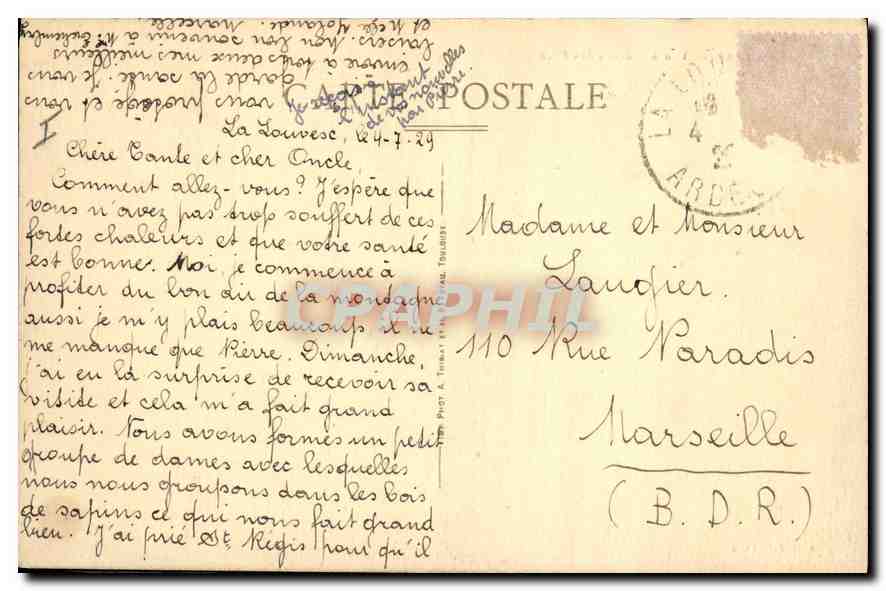 CARTE POSTALE
La Louvesc, le 4-7-29
Chère Tante et cher Oncle,
Comment allez-vous? J'espère que
vous n'avez pas trop souffert de ces
fortes chaleurs et que votre santé
est bonne. Moi, je commence à
profiter du bon air de la montagne
aussi je m'y plais beaucoup il ne
me manque que Pierre. Dimanche
j'ai eu la surprise de recevoir sa
visite et cela m'a fait grand
plaisir. Nous avons formés un petit
groupe de dames avec lesquelles
nous nous groupons dans les bois
de sapins ce qui nous fait grand
bien. J'ai prié St Régis pour qu'il
vous protège et vous
garde la santé. Je vous
envoie à tous deux mes meilleurs
baisers. Mon bon souvenir à
et Melle Yolande. Marcelle
Je reçois à
l'instant
de vos nouvelles
par Pierre.
I
Madame et Monsieur
Laugier.
110 Rue Paradis
Marseille
(B.D.R.)
PHOT. A. TOULOUSE
LA LOUV
18
4
ARDÈ
CPAPHIL